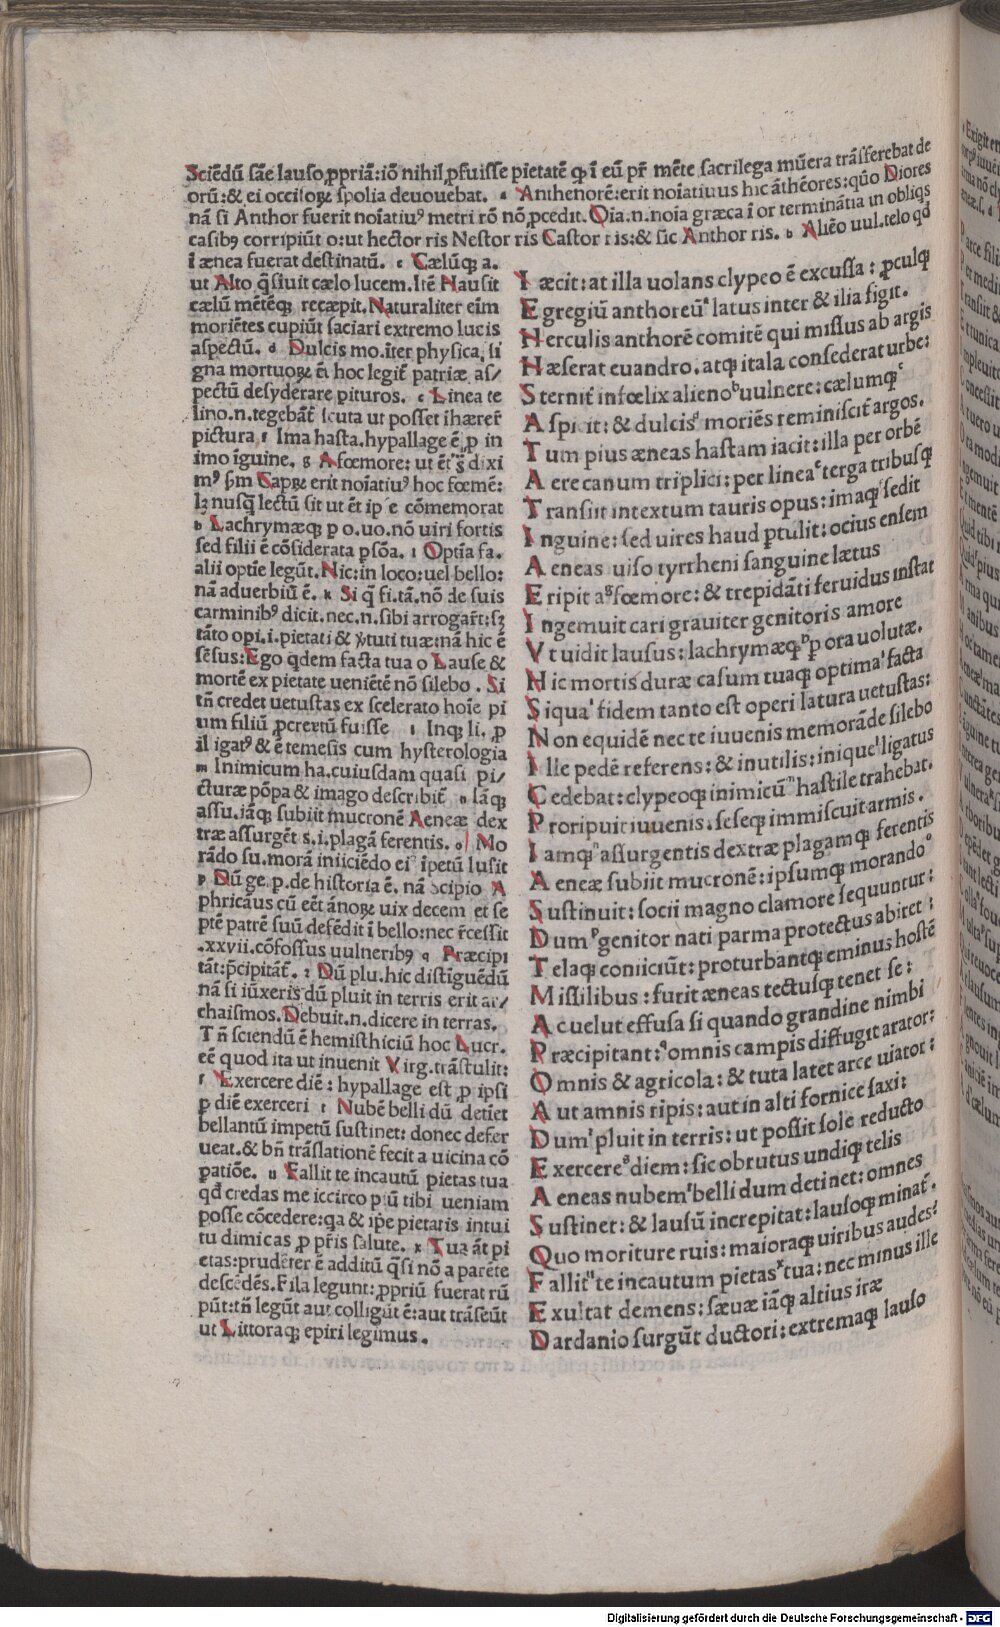 Sciẽdũ sãe lauso ꝓpriã: iõ nihil ꝓfuisse pietatẽ ꝙ ĩ eũ pr̃ mẽte sacrilega mũera trãsferebat de
orũ: & ei occisoꝝ spolia deuouebat. a Anthenorẽ: erit noĩatiuus hic ãthẽores: qũo Diores
nã si Anthor fuerit noĩatiuꝰ metri rõ nõ ꝓcedit. Oĩa .n. noĩa græca ĩ or terminãtia in obliqs
casibꝰ corripiũt o: ut hector ris Nestor ris Castor ris: & sic Anthor ris. b Aliẽo uul. telo qđ
ĩ ænea fuerat destinatũ. c Cælũqꝫ a.
ut Alto q̃siuit cælo lucem. Itẽ Hausit
cælũ mẽtẽqꝫ recæpit. Naturaliter eĩm
moriẽtes cupiũt saciari extremo lucis
aspectũ. d Dulcis mo. ĩter physica, si
gna mortuoꝝ eĩ hoc legit̃ patriæ as/
pectũ desyderare pituros. e Linea te
lino .n. tegebãt̃ scuta ut posset ĩhærer̃
pictura f Ima hasta. hypallage ẽ, ꝓ in
imo ĩguine. g A fœmore: ut ẽt s̃ dixi
mꝰ ẜm Capꝝ erit noĩatiuꝰ hoc fœmẽ:
lꝫ nusq̃ lectũ sit ut ẽt ip̃e cõmemorat
h Lachrymæqꝫ p o. uo. nõ uiri fortis
sed filii ẽ cõsiderata ꝑsõa. i Optĩa fa.
alii optĩe legũt. Nic: in loco: uel bello:
nã aduerbiũ ẽ. k Si q̃ fi. tã. nõ de suis
carminibꝰ dicit. nec .n. sibi arrogar̃t: sꝫ
tãto opi .i. pietati & ỹtuti tuæ: nã hic ẽ
sẽsus: Ego qdem facta tua o Lause &
mortẽ ex pietate ueniẽtẽ nõ silebo. Si
tñ credet uetustas ex scelerato hoĩe pi
um filiũ ꝓcreatũ fuisse l Inqꝫ li. ꝓ
il igatꝰ & ẽ temesis cum hysterologia
m Inimicum ha. cuiusdam quasi pi/
cturæ põpa & imago describit̃ n Iãqꝫ
assu. iãqꝫ subiit mucronẽ Aeneæ dex
træ assurgẽt̃ s. i. plagã ferentis. o Mo
rãdo su. morã iniiciẽdo ei ĩpetũ lusit
p Dũ ge. p. de historia ẽ. nã Scipio A
phricãus cũ eẽt ãnoꝝ uix decem et se
ptẽ patrẽ suũ defẽdit ĩ bello: nec r̃cessit
.xxvii. cõfossus uulneribꝰ q Præcipi
tãt: p̃cipitãt̃. r Dũ plu. hic distĩguẽdũ
nã si iũxeris dũ pluit in terris erit ar/
chaismos. Debuit .n. dicere in terras.
Tñ sciendũ ẽ hemisthiciũ hoc Lucr.
eẽ quod ita ut inuenit Virg. trãstulit:
s Exercere diẽ: hypallage est ꝓ ipsi
ꝑ diẽ exerceri t Nubẽ belli dũ detiet
bellantũ impetũ sustinet: donec defer
ueat. & bñ trãslationẽ fecit a uicina cõ
patiõe. u Fallit te incautũ pietas tua
qđ credas me iccirco p̃ũ tibi ueniam
posse cõcedere: qa & ip̃e pietatis intui
tu dimicas ꝓ pr̃is salute. x Tua ãt pi
etas: prudẽter ẽ additũ q̃si nõ a parẽte
descẽdẽs. Fila legunt: ꝓpriũ fuerat rũ
pũt: tñ legũt aut colligũt ẽ: aut trãseũt
ut Littoraqꝫ epiri legimus.
I æcit: at illa uolans clypeo ẽ excussa: ꝓculqꝫ
E gregiũ anthoreũ a latus inter & ilia figit.
H erculis anthorẽ comitẽ qui missus ab argis
H æserat euandro. atqꝫ itala consederat urbe:
S ternit̃ infœlix alieno b uulnere: cælumqꝫ c
A spicit: & dulcis d moriẽs reminiscit̃ argos.
T um pius æneas hastam iacit: illa per orbẽ
A ere canum triplici: per linea e terga tribusqꝫ
T ransiit intextum tauris opus: imaqꝫ f sedit
I nguine: sed uires haud ꝑtulit: ocius ensem
A eneas uiso tyrrheni sanguine lætus
E ripit a g fœmore: & trepidãti feruidus instat
I ngemuit cari grauiter genitoris amore
V t uidit lausus: lachrymæqꝫ h ꝑ ora uolutæ.
H ic mortis duræ casum tuaqꝫ optima i facta
S iqua k fidem tanto est operi latura uetustas:
N on equidẽ nec te iuuenis memorãde silebo
I lle pedẽ referens: & inutilis: inique l ligatus
C edebat: clypeoqꝫ inimicũ m hastile trahebat.
P roripuit iuuenis. seseqꝫ immiscuit armis.
I amqꝫ n assurgentis dextræ plagamqꝫ ferentis
A eneæ subiit mucronẽ: ipsumqꝫ morando o
S ustinuit: socii magno clamore sequuntur:
D um p genitor nati parma protectus abiret:
T elaqꝫ coniiciũt: proturbantqꝫ eminus hostẽ
M issilibus: furit æneas tectusqꝫ tenet se:
A c uelut effusa si quando grandine nimbi
P ræcipitant: q omnis campis diffugit arator:
O mnis & agricola: & tuta latet arce uiator:
A ut amnis ripis: aut in alti fornice saxi:
D um r pluit in terris: ut possit sole reducto
E xercere s diem: sic obrutus undiqꝫ telis
A eneas nubem t belli dum detinet: omnes
S ustinet: & lausũ increpitat: lausoqꝫ minat̃.
Q uo moriture ruis: maioraqꝫ uiribus audes:
F allit u te incautum pietas x tua: nec minus ille
E xultat demens: sæuæ iãqꝫ altius iræ
D ardanio surgũt ductori: extremaqꝫ lauso
Digitalisierung gefördert durch die Deutsche Forschungsgemeinschaft - DFG